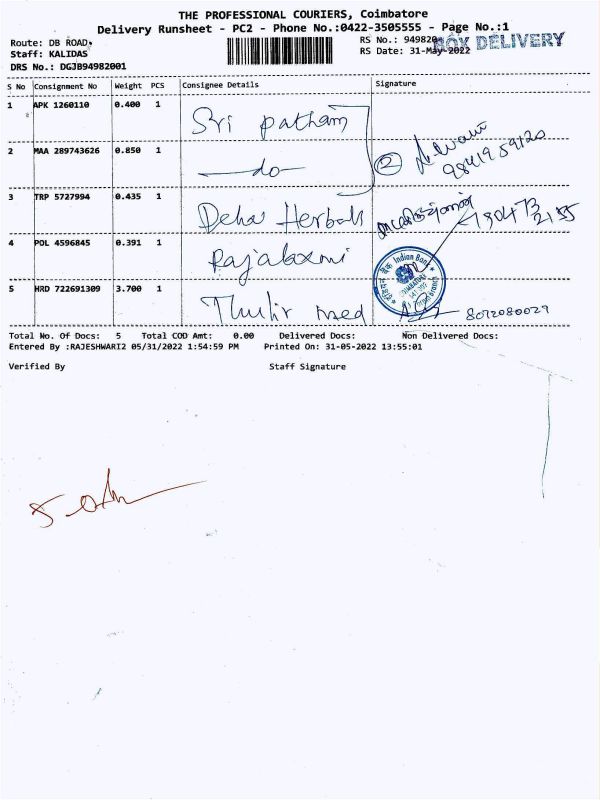 THE PROFESSIONAL COURIERS, Coimbatore
Delivery Runsheet - PC2 - Phone No.:0422-3505555 - Page No.:1
Route: DB ROAD,
RS No.: 949820
BOX DELIVERY
Staff: KALIDAS
RS Date: 31-May-2022
DRS No.: DGJB94982001
S No Consignment No Weight PCS Consignee Details Signature
1 APK 1260110 0.400 1 Sri patham
2 MAA 289743626 0.850 1 -do- 2
3 TRP 5727994 0.435 1 Deha Herbals
4 POL 4596845 0.391 1 Rajalaxmi
Indian Bank
5 HRD 722691309 3.700 1 Thulir med 8072080029
Total No. Of Docs: 5 Total COD Amt: 0.00 Delivered Docs: Non Delivered Docs:
Entered By :RAJESHWARI2 05/31/2022 1:54:59 PM Printed On: 31-05-2022 13:55:01
Verified By Staff Signature